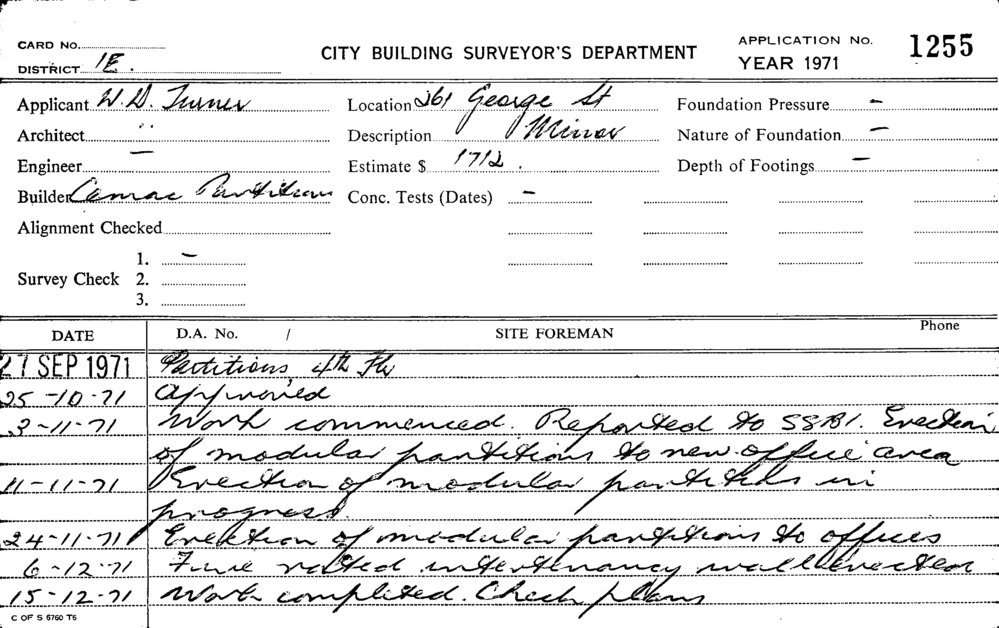 CARD No.
DISTRICT 1E.
CITY BUILDING SURVEYOR'S DEPARTMENT
APPLICATION No. 1255
YEAR 1971
Applicant W.D. Turner
Location 261 George St
Foundation Pressure -
Architect "
Description Minor
Nature of Foundation -
Engineer -
Estimate $ 1712.
Depth of Footings -
Builder Camac Partitions
Conc. Tests (Dates) -
Alignment Checked
Survey Check 1. -
2.
3.
DATE D.A. No. / SITE FOREMAN Phone
27 SEP 1971 Partitions, 4th Flr
25-10-71 Approved
3-11-71 Work commenced. Reported to SSBI. Erection
of modular partitions to new office area
11-11-71 Erection of modular partitions in
progress.
24-11-71 Erection of modular partitions to offices
6-12-71 Fire rated intertenancy wall erected
15-12-71 Work completed. Check plans
C OF S 6760 T6